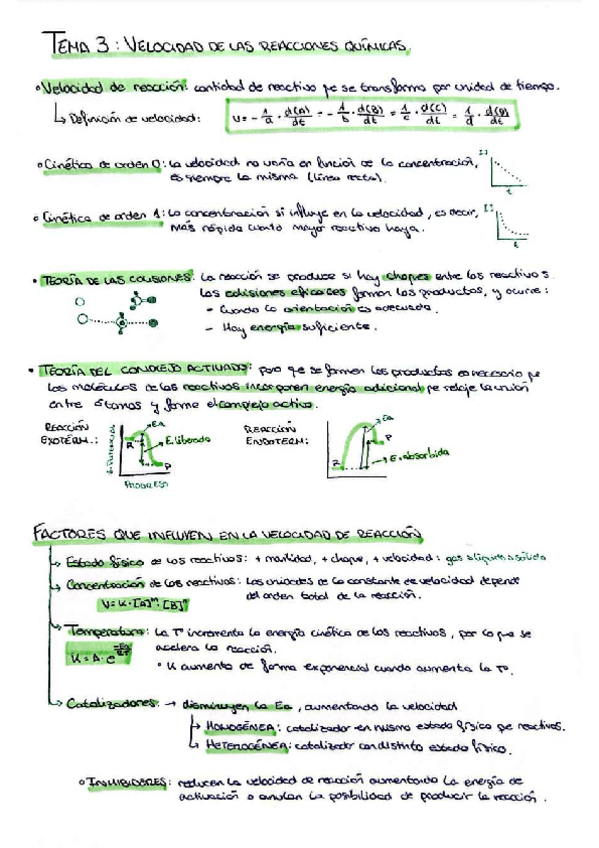 TEMA 3: VELOCIDAD DE LAS REACCIONES QUÍMICAS.
Velocidad de reacción: cantidad de reactivo qe se transforma por unidad de tiempo.
↳ Definición de velocidad: V = - 1/a · d(A)/dt = - 1/b · d(B)/dt = 1/c · d(C)/dt = 1/d · d(D)/dt
Cinética de orden 0: la velocidad no varía en función de la concentración,
es siempre la misma (línea recta).
[ ]
t
Cinética de orden 1: La concentración si influye en la velocidad, es decir,
más rápida cuanto mayor reactivo haya.
[ ]
t
TEORÍA DE LAS COLISIONES: La reacción se produce si hay choques entre los reactivos.
Las colisiones eficaces forman los productos, y ocurre:
- Cuando la orientación es adecuada.
- Hay energía suficiente.
TEORÍA DEL COMPLEJO ACTIVADO: para qe se formen los productos es necesario qe
las moléculas de los reactivos incorporen energía adicional qe relaje la unión
entre átomos y forme el complejo activo.
REACCIÓN
EXOTERM.:
E. Potencial
R
Ea
E. liberada
P
PROGRESO
REACCIÓN
ENDOTERM:
R
Ea
P
E. absorbida
FACTORES QUE INFLUYEN EN LA VELOCIDAD DE REACCIÓN
↳ Estado físico de los reactivos: + movilidad, + choque, + velocidad: gas > líquido > sólido
↳ Concentración de los reactivos: Las unidades de la constante de velocidad depende
del orden total de la reacción.
V = K · [A]ᵐ · [B]ⁿ
↳ Temperatura: La Tª incrementa la energía cinética de los reactivos, por lo que se
acelera la reacción.
K = A · e^(-Ea/RT)
• K aumenta de forma exponencial cuando aumenta la Tª.
↳ Catalizadores: → disminuyen la Ea, aumentando la velocidad
↳ HOMOGÉNEA: catalizador en mismo estado físico qe reactivos.
↳ HETEROGÉNEA: catalizador con distinto estado físico.
INHIBIDORES: reducen la velocidad de reacción aumentando la energía de
activación o anulan la posibilidad de producir la reacción.